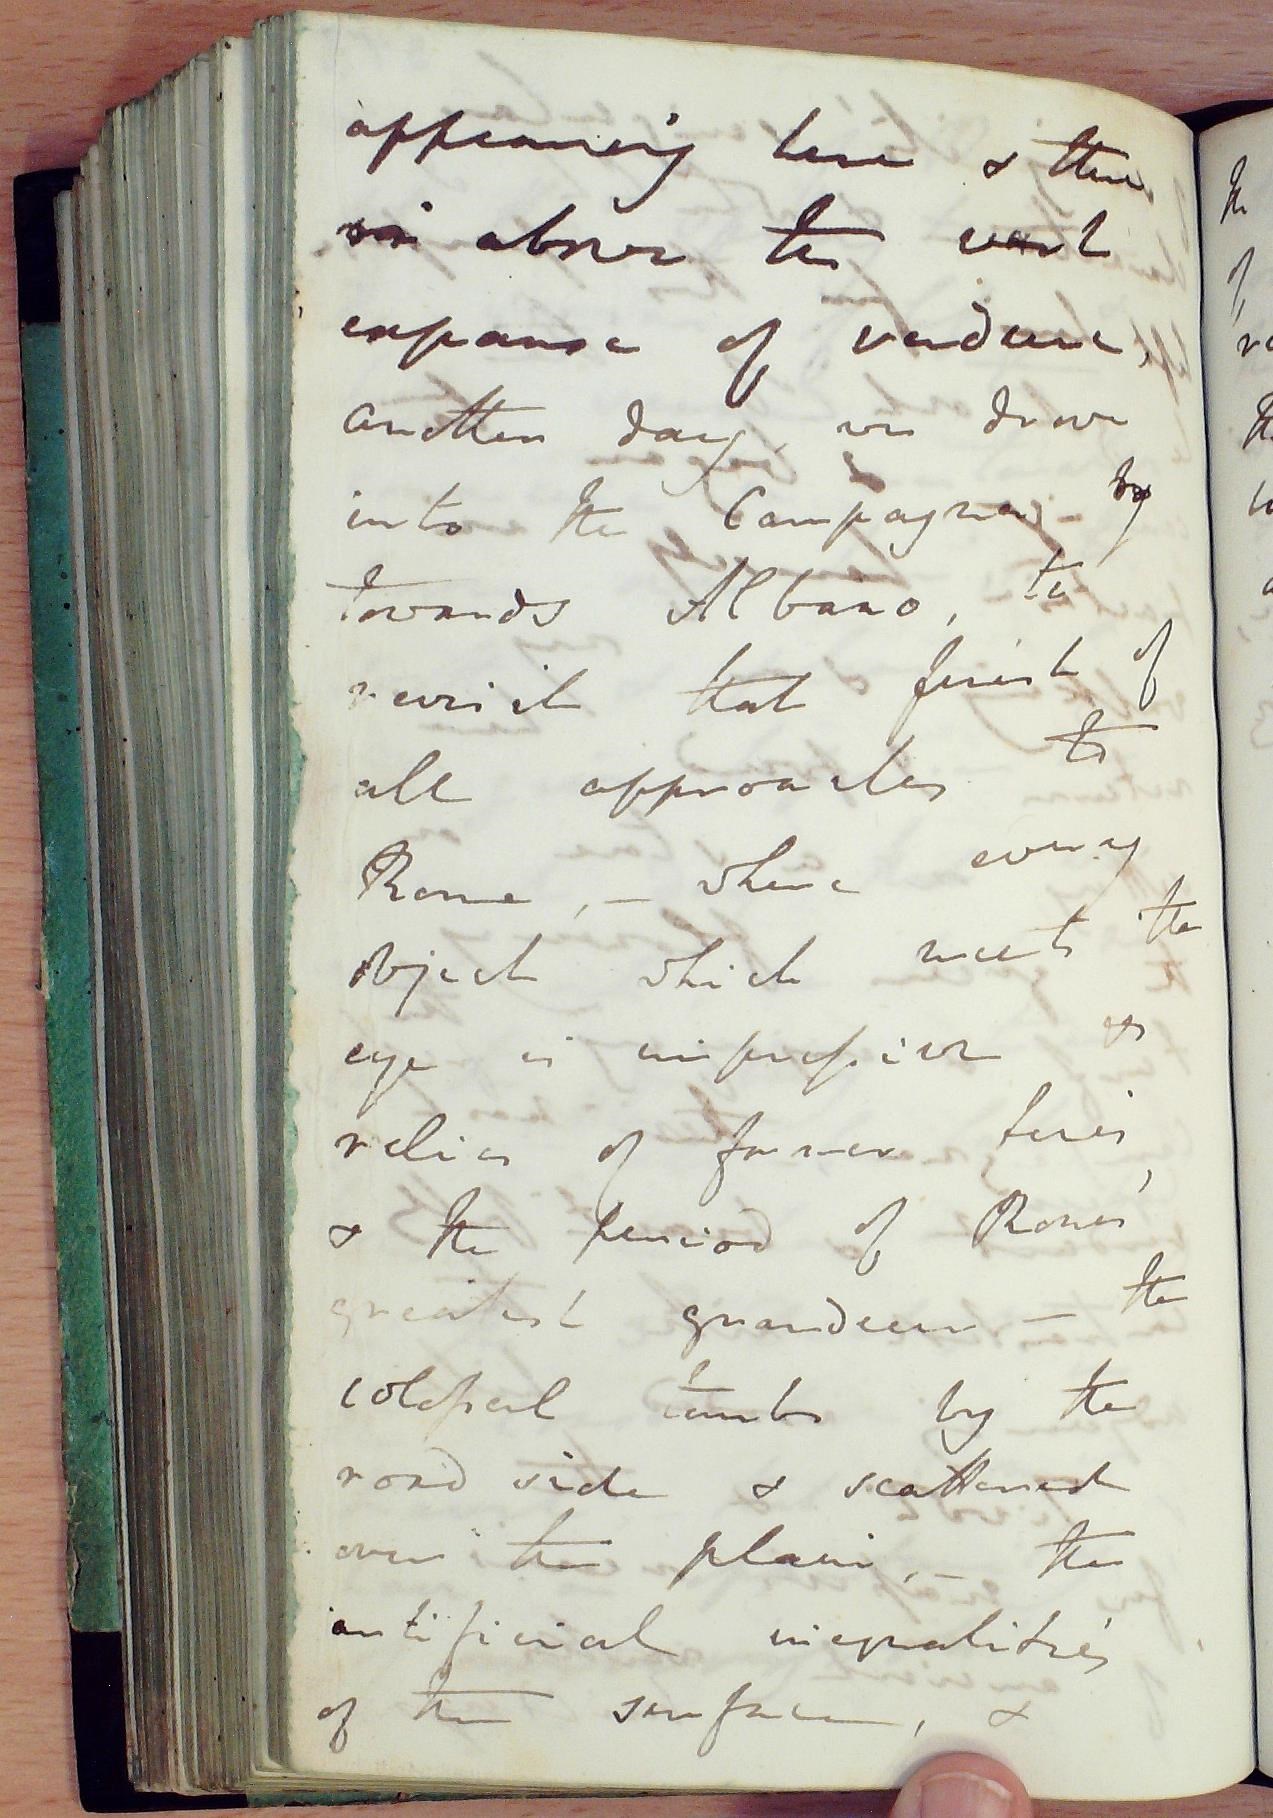 appearing here & there
above the vast
expanse of verdure,
another day, we drove
into the Campagna by
towards Albano, to
revisit that finest of
all approaches to
Rome, – where every
object which meets the
eye is impressive as
relics of former times,
& the period of Rome's
greatest grandeur – the
colossal tombs by the
road side & scattered
over the plain, – the
artificial inequalities
of the surface, &